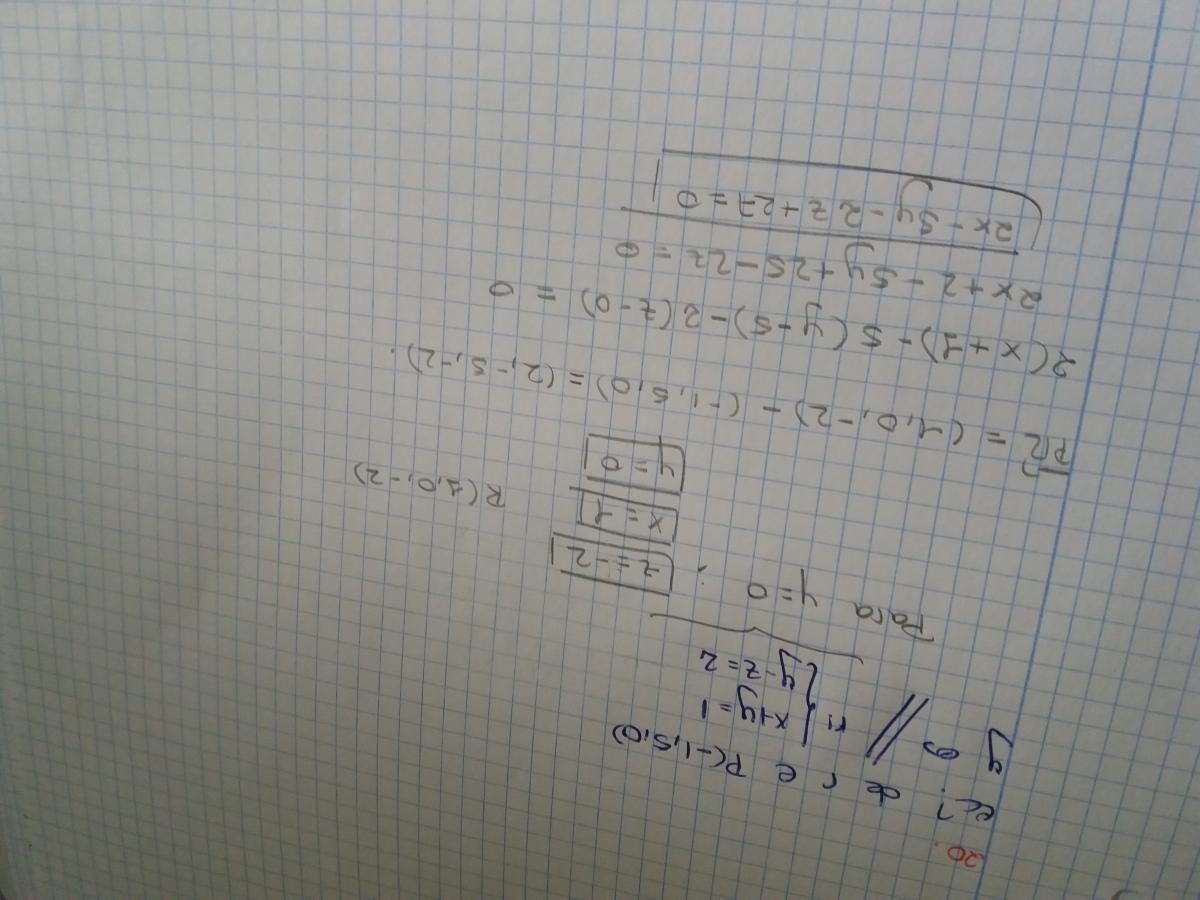 20.
ec? de r e P(-1,5,0)
y es // r: { x+y=1
y-z=2
Para y=0 :
z=-2
x=1
y=0
R(1,0,-2)
PR = (1,0,-2) - (-1,5,0) = (2,-5,-2).
2(x+1)-5(y-5)-2(z-0) = 0
2x+2-5y+25-2z=0
2x-5y-2z+27=0